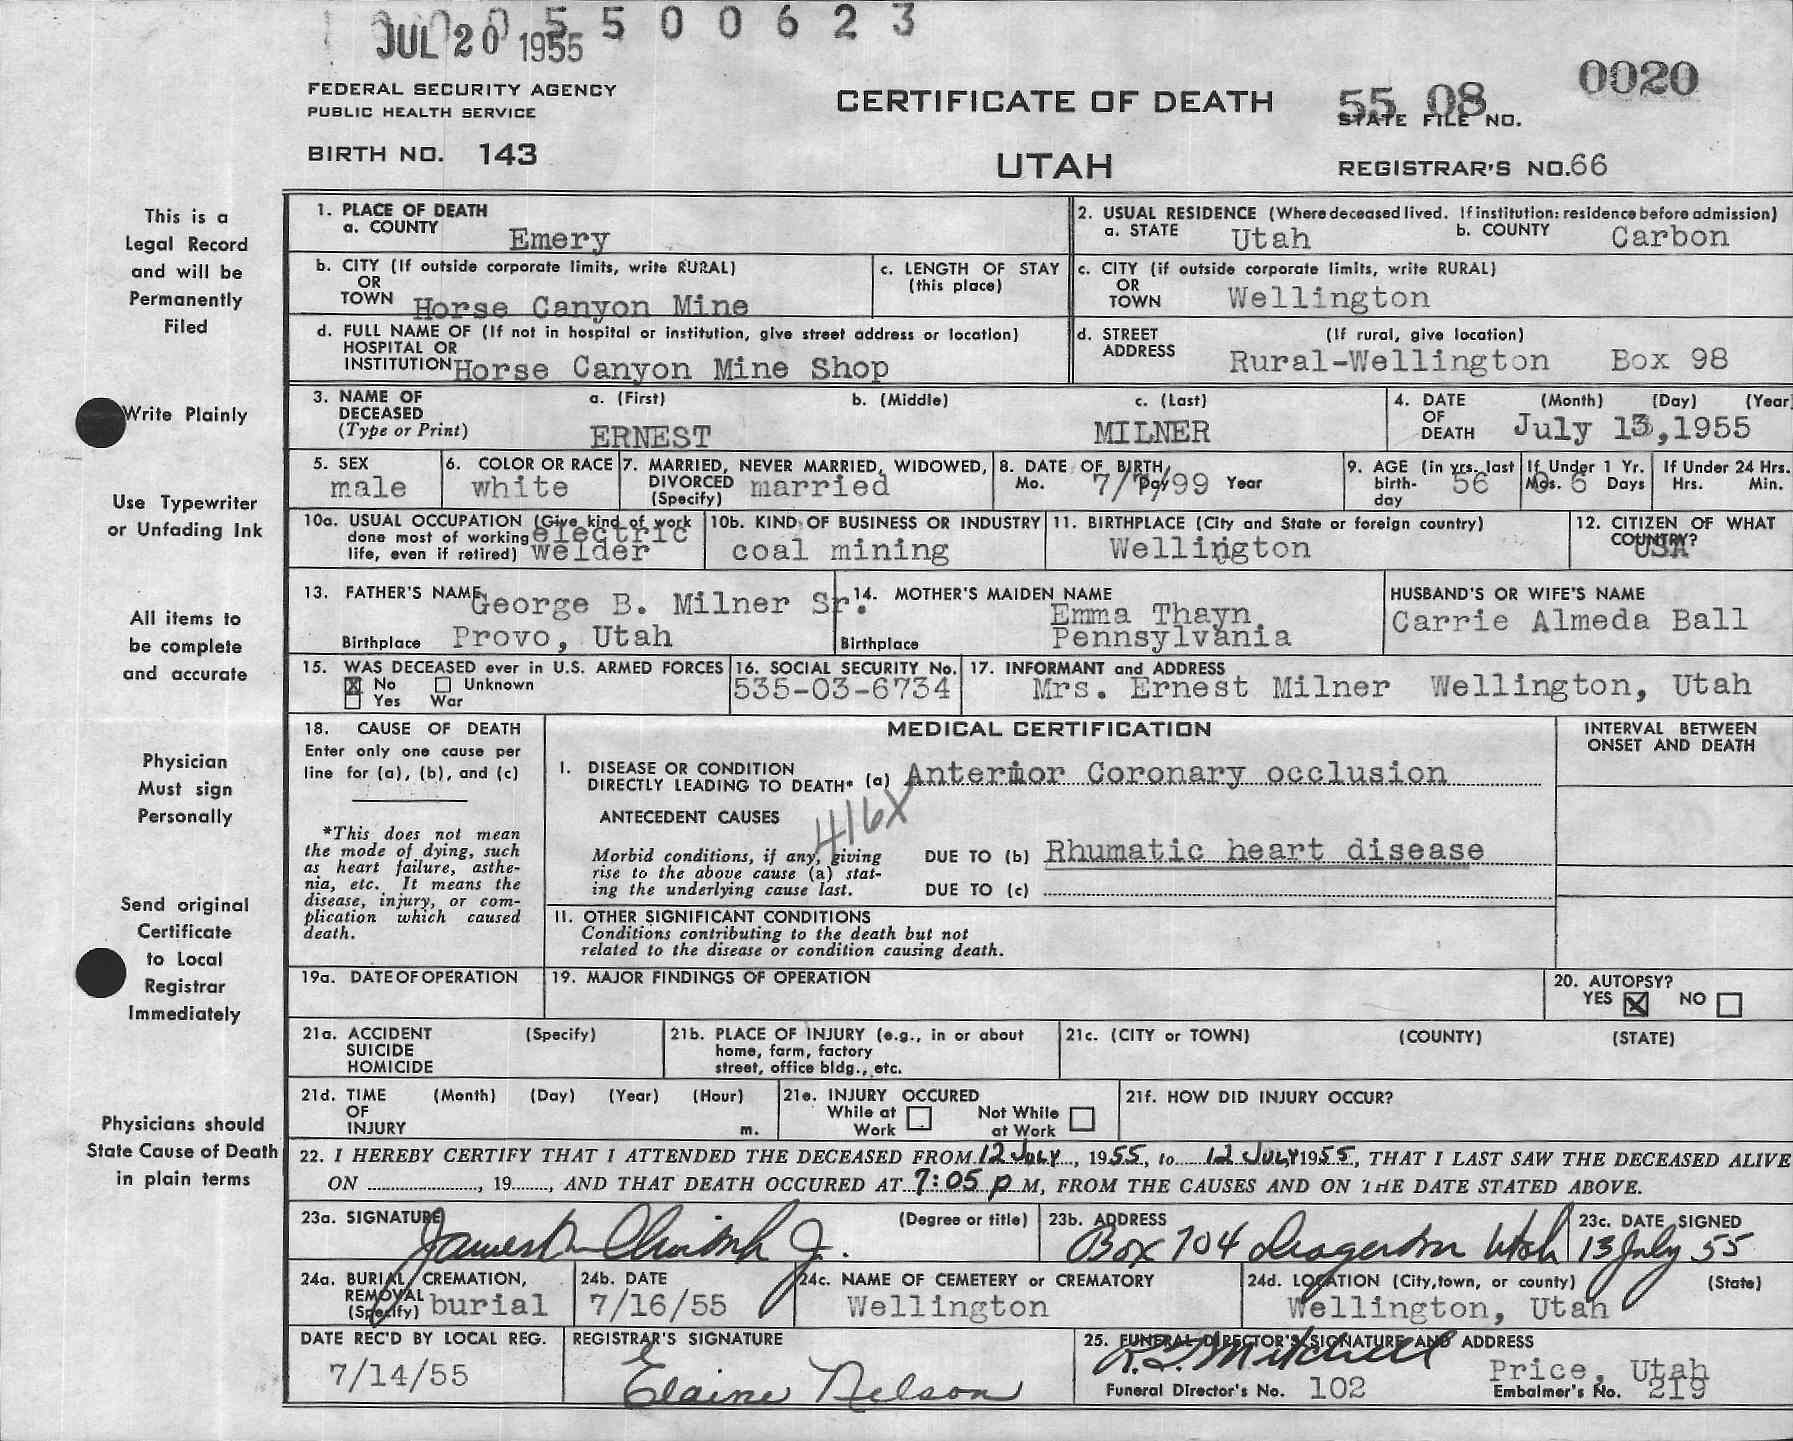 JUL 20 1955
5 5 0 0 6 2 3
0020
FEDERAL SECURITY AGENCY
PUBLIC HEALTH SERVICE
CERTIFICATE OF DEATH
55 08
STATE FILE NO.
BIRTH NO. 143
UTAH
REGISTRAR'S NO. 66
This is a
Legal Record
and will be
Permanently
Filed
Write Plainly
Use Typewriter
or Unfading Ink
All items to
be complete
and accurate
Physician
Must sign
Personally
Send original
Certificate
to Local
Registrar
Immediately
Physicians should
State Cause of Death
in plain terms
1. PLACE OF DEATH
a. COUNTY Emery
2. USUAL RESIDENCE (Where deceased lived. If institution: residence before admission)
a. STATE Utah b. COUNTY Carbon
b. CITY (If outside corporate limits, write RURAL)
OR
TOWN Horse Canyon Mine
c. LENGTH OF STAY
(this place)
c. CITY (if outside corporate limits, write RURAL)
OR
TOWN Wellington
d. FULL NAME OF (If not in hospital or institution, give street address or location)
HOSPITAL OR
INSTITUTION Horse Canyon Mine Shop
d. STREET (If rural, give location)
ADDRESS Rural-Wellington Box 98
3. NAME OF DECEASED
(Type or Print)
a. (First) b. (Middle) c. (Last)
ERNEST MILNER
4. DATE OF DEATH (Month) (Day) (Year)
July 13,1955
5. SEX
male
6. COLOR OR RACE
white
7. MARRIED, NEVER MARRIED, WIDOWED,
DIVORCED married
(Specify)
8. DATE OF BIRTH
Mo. Day Year
7/7/99
9. AGE (in yrs. last
birth-
day 56
If Under 1 Yr.
Mos. 6 Days
If Under 24 Hrs.
Hrs. Min.
10a. USUAL OCCUPATION (Give kind of work
done most of working electric
life, even if retired) welder
10b. KIND OF BUSINESS OR INDUSTRY
coal mining
11. BIRTHPLACE (City and State or foreign country)
Wellington
12. CITIZEN OF WHAT
COUNTRY?
USA
13. FATHER'S NAME George B. Milner Sr.
Birthplace Provo, Utah
14. MOTHER'S MAIDEN NAME
Emma Thayn
Birthplace Pennsylvania
HUSBAND'S OR WIFE'S NAME
Carrie Almeda Ball
15. WAS DECEASED ever in U.S. ARMED FORCES
X No Unknown
Yes War
16. SOCIAL SECURITY No.
535-03-6734
17. INFORMANT and ADDRESS
Mrs. Ernest Milner Wellington, Utah
18. CAUSE OF DEATH
Enter only one cause per
line for (a), (b), and (c)
*This does not mean
the mode of dying, such
as heart failure, asthe-
nia, etc. It means the
disease, injury, or com-
plication which caused
death.
MEDICAL CERTIFICATION
INTERVAL BETWEEN
ONSET AND DEATH
I. DISEASE OR CONDITION
DIRECTLY LEADING TO DEATH* (a) Anterior Coronary occlusion
ANTECEDENT CAUSES
416X
Morbid conditions, if any, giving
rise to the above cause (a) stat-
ing the underlying cause last.
DUE TO (b) Rhumatic heart disease
DUE TO (c)
II. OTHER SIGNIFICANT CONDITIONS
Conditions contributing to the death but not
related to the disease or condition causing death.
19a. DATE OF OPERATION
19. MAJOR FINDINGS OF OPERATION
20. AUTOPSY?
YES X NO
21a. ACCIDENT (Specify)
SUICIDE
HOMICIDE
21b. PLACE OF INJURY (e.g., in or about
home, farm, factory
street, office bldg., etc.
21c. (CITY or TOWN) (COUNTY) (STATE)
21d. TIME (Month) (Day) (Year) (Hour)
OF
INJURY m.
21e. INJURY OCCURED
While at Work Not While at Work
21f. HOW DID INJURY OCCUR?
22. I HEREBY CERTIFY THAT I ATTENDED THE DECEASED FROM 12 July, 1955, to 12 July 1955, THAT I LAST SAW THE DECEASED ALIVE
ON , 19 , AND THAT DEATH OCCURED AT 7:05 P M, FROM THE CAUSES AND ON THE DATE STATED ABOVE.
23a. SIGNATURE (Degree or title)
James Jr.
23b. ADDRESS
Box 704 Dragerton Utah
23c. DATE SIGNED
13 July 55
24a. BURIAL, CREMATION,
REMOVAL
(Specify) burial
24b. DATE
7/16/55
24c. NAME OF CEMETERY or CREMATORY
Wellington
24d. LOCATION (City, town, or county) (State)
Wellington, Utah
DATE REC'D BY LOCAL REG.
7/14/55
REGISTRAR'S SIGNATURE
Elaine Nelson
25. FUNERAL DIRECTOR'S SIGNATURE AND ADDRESS
Mitchell Price, Utah
Funeral Director's No. 102 Embalmer's No. 219